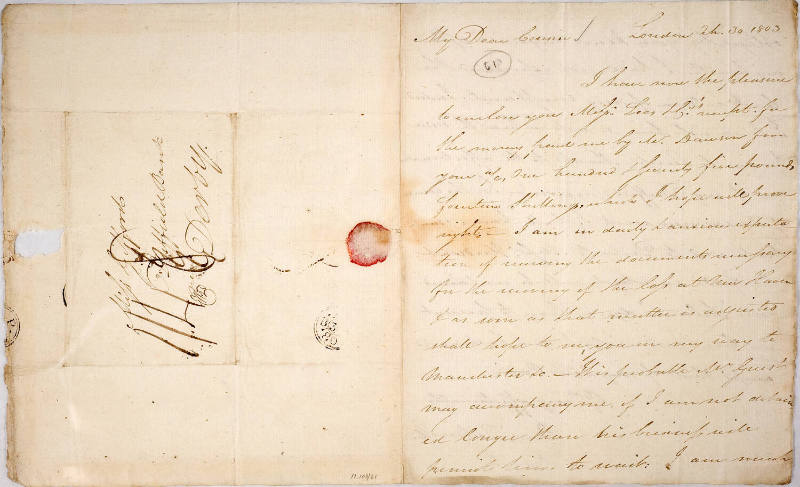 My Dear Cousin
London 30 1803
I have now the pleasure
to enclose you Miss Lees receipt for
the money paid me by Mr. Dawson from
your a/c, One hundred & Seventy five pounds
fourteen Shillings, which I hope will prove
right. — I am in daily & anxious expecta
tion of receiving the documents necessary
for the recovery of the loss at New Haven
& as soon as that matter is adjusted
shall hope to see you in my way to
Manchester &c. — It is probable Mr. Guest
may accompany me, if I am not detain
ed longer than his business will
permit him to wait: I am much
Miss
Bank
Derby.